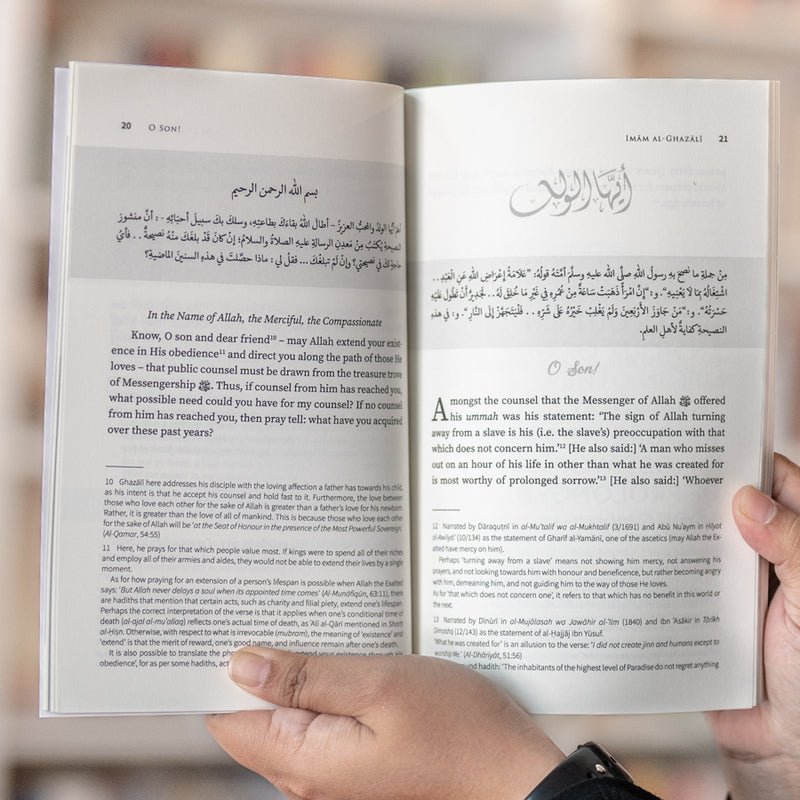 20 O SON!
بسم الله الرحمن الرحيم
اعلم أيها الولدُ والمحبُّ العزيزُ – أطالَ اللهُ بقاءَكَ بطاعتِهِ، وسلكَ بكَ سبيلَ أحبّائِهِ - : أنَّ منشورَ
النصيحةِ يُكتَبُ مِنْ مَعدِنِ الرسالةِ عليهِ الصلاةُ والسلامُ؛ إنْ كانَ قَدْ بلغَكَ منْهُ نصيحةٌ . . فأيُّ
حاجةٍ لكَ في نصيحتي؟ وإنْ لمْ تبلغْكَ . . فقلْ لي : ماذا حصَّلتَ في هذهِ السنينَ الماضيةِ؟
In the Name of Allah, the Merciful, the Compassionate
Know, O son and dear friend¹⁰ – may Allah extend your exist-
ence in His obedience¹¹ and direct you along the path of those He
loves – that public counsel must be drawn from the treasure trove
of Messengership ﷺ. Thus, if counsel from him has reached you,
what possible need could you have for my counsel? If no counsel
from him has reached you, then pray tell: what have you acquired
over these past years?
10 Ghazālī here addresses his disciple with the loving affection a father has towards his child,
as his intent is that he accept his counsel and hold fast to it. Furthermore, the love between
those who love each other for the sake of Allah is greater than a father's love for his newborn.
Rather, it is greater than the love of all of mankind. This is because those who love each other
for the sake of Allah will be 'at the Seat of Honour in the presence of the Most Powerful Sovereign'
(Al-Qamar, 54:55)
11 Here, he prays for that which people value most. If kings were to spend all of their riches
and employ all of their armies and aides, they would not be able to extend their lives by a single
moment.
As for how praying for an extension of a person's lifespan is possible when Allah the Exalted
says: 'But Allah never delays a soul when its appointed time comes' (Al-Munāfiqūn, 63:11), there
are hadiths that mention that certain acts, such as charity and filial piety, extend one's lifespan.
Perhaps the correct interpretation of the verse is that it applies when one's conditional time of
death (al-ajal al-mu'allaq) reflects one's actual time of death, as 'Alī al-Qārī mentioned in Sharḥ
al-Ḥiṣn. Otherwise, with respect to what is irrevocable (mubram), the meaning of 'existence' and
'extend' is that the merit of reward, one's good name, and influence remain after one's death.
It is also possible to translate the phrase extend your existence through His
obedience', for as per some hadiths, act
IMĀM AL-GHAZĀLĪ 21
أيُّهَا الولد
مِنْ جملةِ ما نصحَ بهِ رسولُ اللهِ صلَّى اللهُ عليهِ وسلَّمَ أُمَّتَهُ قولُهُ: "عَلَامَةُ إِعْرَاضِ اللهِ عَنِ العَبْدِ . .
اشْتِغَالُهُ بِمَا لَا يَعْنِيهِ". و: "إِنَّ امْرَأً ذَهَبَتْ سَاعَةٌ مِنْ عُمُرِهِ فِي غَيْرِ مَا خُلِقَ لَهُ . . لَجَدِيرٌ أَنْ تَطُولَ عَلَيْهِ
حَسْرَتُهُ". و: "مَنْ جَاوَزَ الأَرْبَعِينَ وَلَمْ يَغْلِبْ خَيْرُهُ عَلَى شَرِّهِ . . فَلْيَتَجَهَّزْ إِلَى النَّارِ". و: في هذهِ
النصيحةِ كفايةٌ لأهلِ العلمِ.
O Son!
Amongst the counsel that the Messenger of Allah ﷺ offered
his ummah was his statement: 'The sign of Allah turning
away from a slave is his (i.e. the slave's) preoccupation with that
which does not concern him.'¹² [He also said:] 'A man who misses
out on an hour of his life in other than what he was created for
is most worthy of prolonged sorrow.'¹³ [He also said:] 'Whoever
12 Narrated by Dāraquṭnī in al-Mu'talif wa al-Mukhtalif (3/1691) and Abū Nu'aym in Ḥilyat
al-Awliyā' (10/134) as the statement of Gharif al-Yamānī, one of the ascetics (may Allah the Ex-
alted have mercy on him).
Perhaps 'turning away from a slave' means not showing him mercy, not answering his
prayers, and not looking towards him with honour and beneficence, but rather becoming angry
with him, demeaning him, and not guiding him to the way of those He loves.
As for 'that which does not concern one', it refers to that which has no benefit in this world or
the next.
13 Narrated by Dīnūrī in al-Mujālasah wa Jawāhir al-'Ilm (1840) and Ibn 'Asākir in Tārīkh
Dimashq (12/143) as the statement of al-Ḥajjāj ibn Yūsuf.
'What he was created for' is an allusion to the verse: 'I did not create jinn and humans except to
worship Me.' (Al-Dhāriyāt, 51:56)
ound hadith: 'The inhabitants of the highest level of Paradise do not regret anything